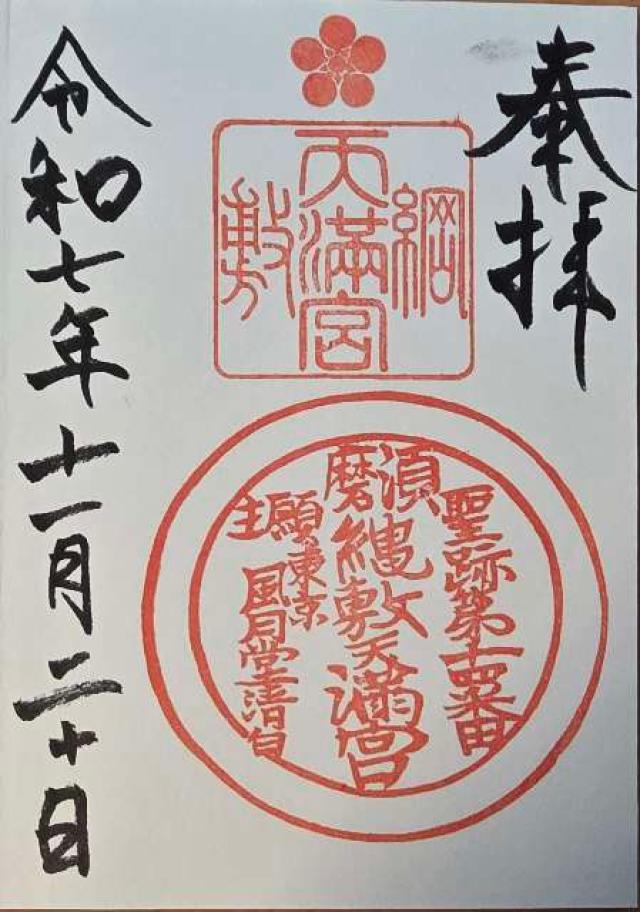 奉拝
綱
天満宮
敷
聖跡第十四番
須磨
縄敷天満宮
願主
東京
風月堂清白
令和七年十一月二十日